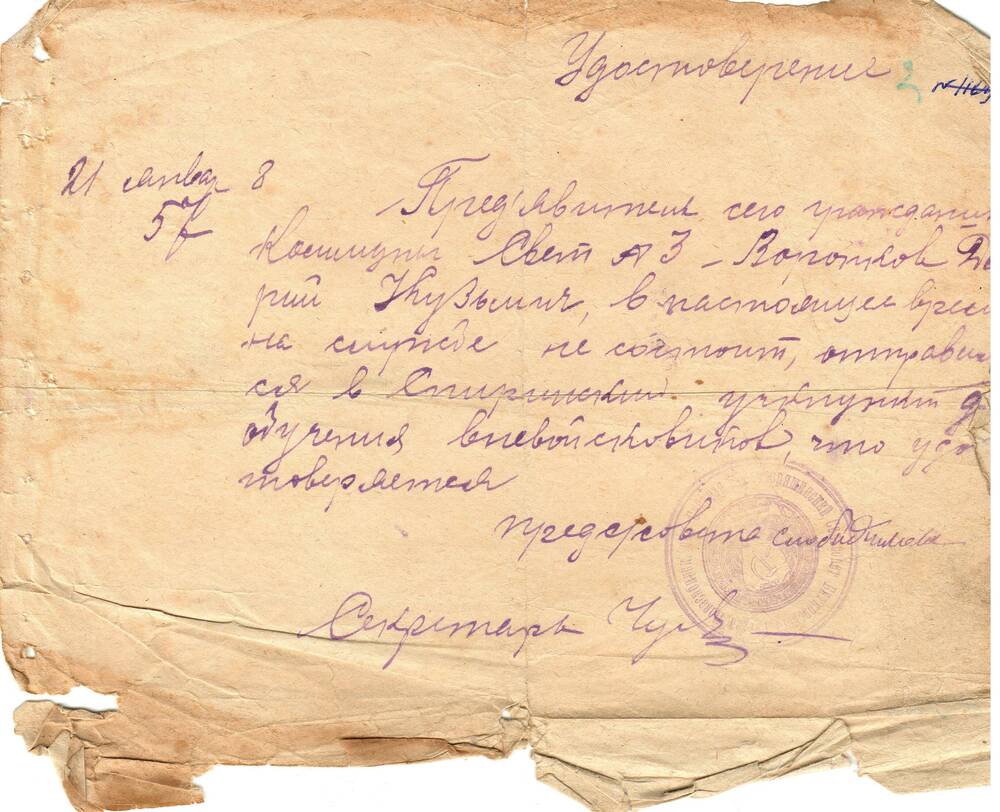 Удостоверение
21 январ 8
57
Пред'явителя сего граждани
Коммуны Свет № 3 - Воротков
рий Кузьмич, в настоящее врем
на службе не состоит, отправи
ся в Спиринский учпункт д
обучения вневойсковиков, что удо
товеряется
предс/совета
Секретарь